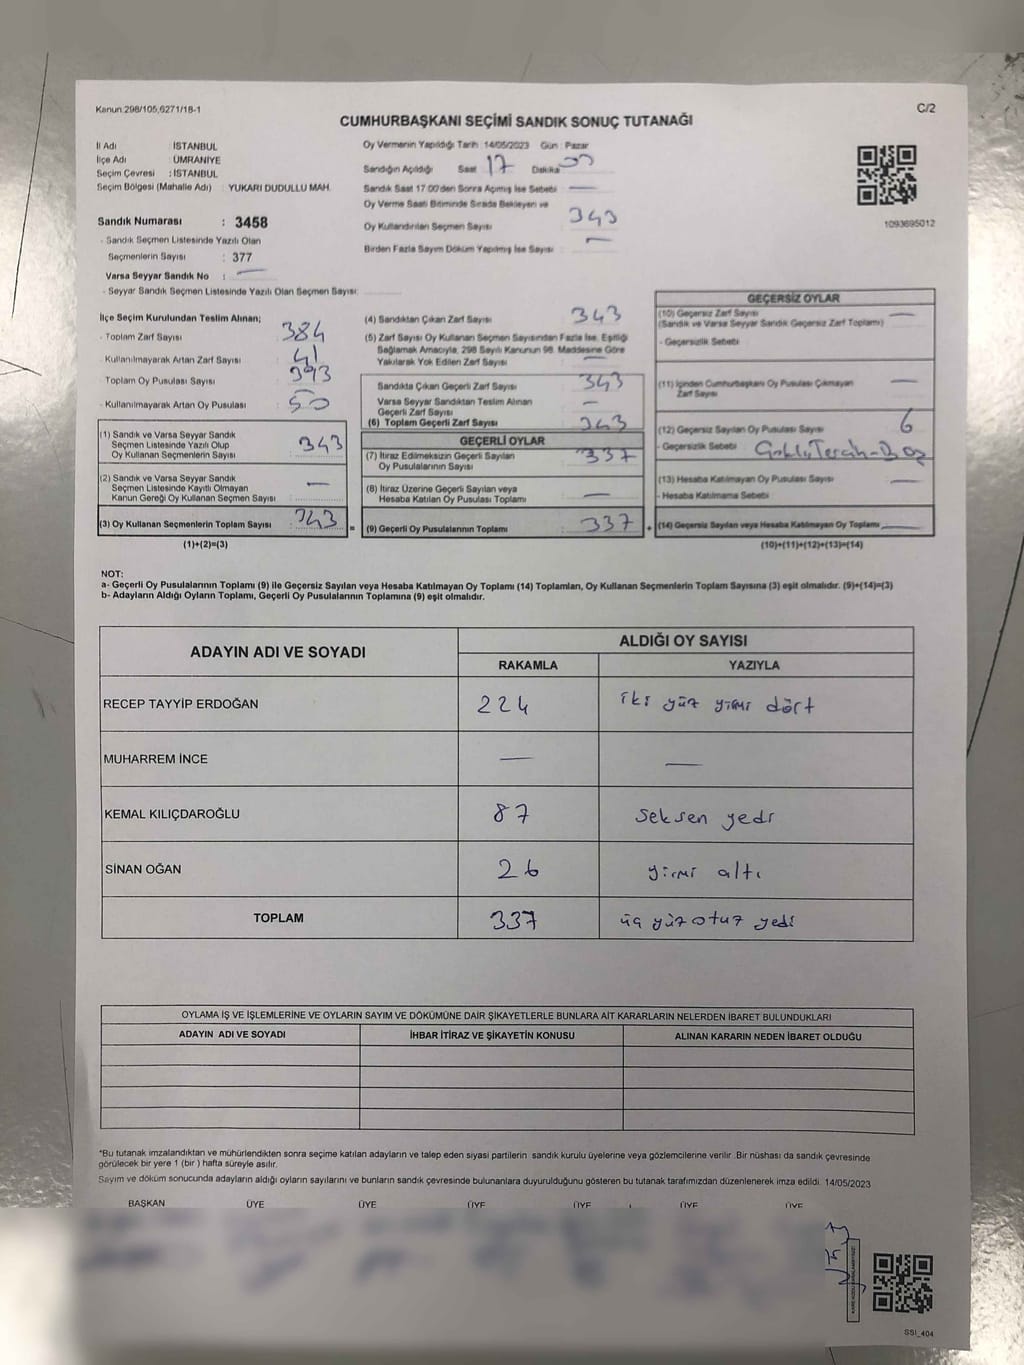 Kanun:298/105,6271/18-1
C/2
CUMHURBAŞKANI SEÇİMİ SANDIK SONUÇ TUTANAĞI
İl Adı : İSTANBUL
İlçe Adı : ÜMRANİYE
Seçim Çevresi : İSTANBUL
Seçim Bölgesi (Mahalle Adı) : YUKARI DUDULLU MAH.
Sandık Numarası : 3458
- Sandık Seçmen Listesinde Yazılı Olan
Seçmenlerin Sayısı : 377
Varsa Seyyar Sandık No : —
- Seyyar Sandık Seçmen Listesinde Yazılı Olan Seçmen Sayısı:
Oy Vermenin Yapıldığı Tarih 14/05/2023 Gün : Pazar
Sandığın Açıldığı Saat 17 Dakika
Sandık Saat 17:00'den Sonra Açılmış İse Sebebi —
Oy Verme Saati Bitiminde Sırada Bekleyen ve
Oy Kullandırılan Seçmen Sayısı 343
Birden Fazla Sayım Döküm Yapılmış İse Sayısı —
1093695012
İlçe Seçim Kurulundan Teslim Alınan;
- Toplam Zarf Sayısı 384
- Kullanılmayarak Artan Zarf Sayısı 41
- Toplam Oy Pusulası Sayısı 393
- Kullanılmayarak Artan Oy Pusulası 50
(1) Sandık ve Varsa Seyyar Sandık
Seçmen Listesinde Yazılı Olup
Oy Kullanan Seçmenlerin Sayısı 343
(2) Sandık ve Varsa Seyyar Sandık
Seçmen Listesinde Kayıtlı Olmayan
Kanun Gereği Oy Kullanan Seçmen Sayısı —
(3) Oy Kullanan Seçmenlerin Toplam Sayısı : 343 =
(1)+(2)=(3)
(4) Sandıktan Çıkan Zarf Sayısı 343
(5) Zarf Sayısı Oy Kullanan Seçmen Sayısından Fazla İse, Eşitliği
Sağlamak Amacıyla; 298 Sayılı Kanunun 98. Maddesine Göre
Yakılarak Yok Edilen Zarf Sayısı —
Sandıkta Çıkan Geçerli Zarf Sayısı 343
Varsa Seyyar Sandıktan Teslim Alınan
Geçerli Zarf Sayısı —
(6) Toplam Geçerli Zarf Sayısı 343
GEÇERLİ OYLAR
(7) İtiraz Edilmeksizin Geçerli Sayılan
Oy Pusulalarının Sayısı 337
(8) İtiraz Üzerine Geçerli Sayılan veya
Hesaba Katılan Oy Pusulası Toplamı —
(9) Geçerli Oy Pusulalarının Toplamı : 337 +
GEÇERSİZ OYLAR
(10) Geçersiz Zarf Sayısı —
(Sandık ve Varsa Seyyar Sandık Geçersiz Zarf Toplamı)
- Geçersizlik Sebebi
(11) İçinden Cumhurbaşkanı Oy Pusulası Çıkmayan —
Zarf Sayısı
(12) Geçersiz Sayılan Oy Pusulası Sayısı 6
- Geçersizlik Sebebi Çoklu Tercih-Boş
(13) Hesaba Katılmayan Oy Pusulası Sayısı —
- Hesaba Katılmama Sebebi
(14) Geçersiz Sayılan veya Hesaba Katılmayan Oy Toplamı —
(10)+(11)+(12)+(13)=(14)
NOT:
a- Geçerli Oy Pusulalarının Toplamı (9) ile Geçersiz Sayılan veya Hesaba Katılmayan Oy Toplamı (14) Toplamları, Oy Kullanan Seçmenlerin Toplam Sayısına (3) eşit olmalıdır. (9)+(14)=(3)
b- Adayların Aldığı Oyların Toplamı, Geçerli Oy Pusulalarının Toplamına (9) eşit olmalıdır.
ADAYIN ADI VE SOYADI
ALDIĞI OY SAYISI
RAKAMLA YAZIYLA
RECEP TAYYİP ERDOĞAN 224 iki yüz yirmi dört
MUHARREM İNCE — —
KEMAL KILIÇDAROĞLU 87 seksen yedi
SİNAN OĞAN 26 yirmi altı
TOPLAM 337 üç yüz otuz yedi
OYLAMA İŞ VE İŞLEMLERİNE VE OYLARIN SAYIM VE DÖKÜMÜNE DAİR ŞİKAYETLERLE BUNLARA AİT KARARLARIN NELERDEN İBARET BULUNDUKLARI
ADAYIN ADI VE SOYADI İHBAR İTİRAZ VE ŞİKAYETİN KONUSU ALINAN KARARIN NEDEN İBARET OLDUĞU
*Bu tutanak imzalandıktan ve mühürlendikten sonra seçime katılan adayların ve talep eden siyasi partilerin sandık kurulu üyelerine veya gözlemcilerine verilir. Bir nüshası da sandık çevresinde
görülecek bir yere 1 (bir ) hafta süreyle asılır.
Sayım ve döküm sonucunda adayların aldığı oyların sayılarını ve bunların sandık çevresinde bulunanlara duyurulduğunu gösteren bu tutanak tarafımızdan düzenlenerek imza edildi. 14/05/2023
BAŞKAN ÜYE ÜYE ÜYE ÜYE ÜYE ÜYE
SSI_404